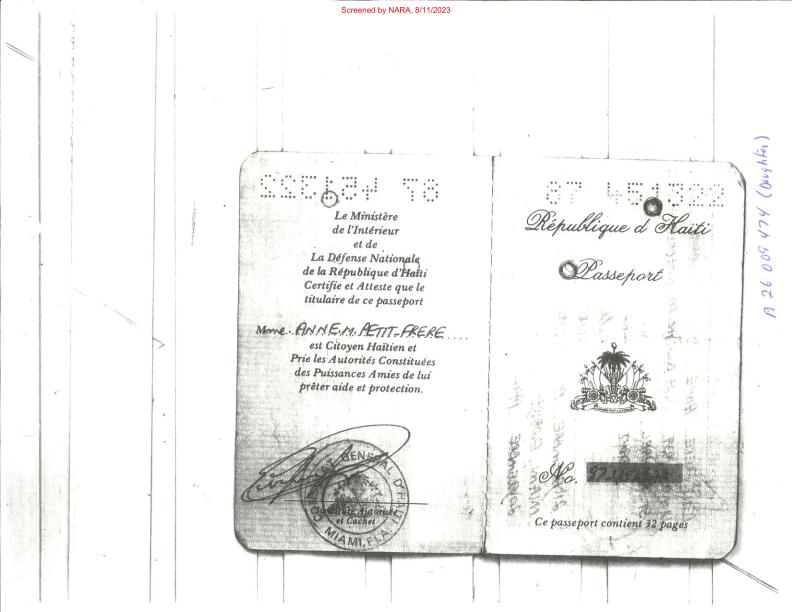 Screened by NARA, 8/11/2023
Le Ministère
de l'Intérieur
et de
La Défense Nationale
de la République d'Haïti
Certifie et Atteste que le
titulaire de ce passeport
Mme. ANNE.M. PETIT-FRERE
est Citoyen Haïtien et
Prie les Autorités Constituées
des Puissances Amies de lui
prêter aide et protection.
GENERAL
Autorisée
et Cachet
MIAMI, FLA.
87 451322
République d'Haïti
Passeport
No.
Ce passeport contient 32 pages
A 26 009 474 (Daughter)